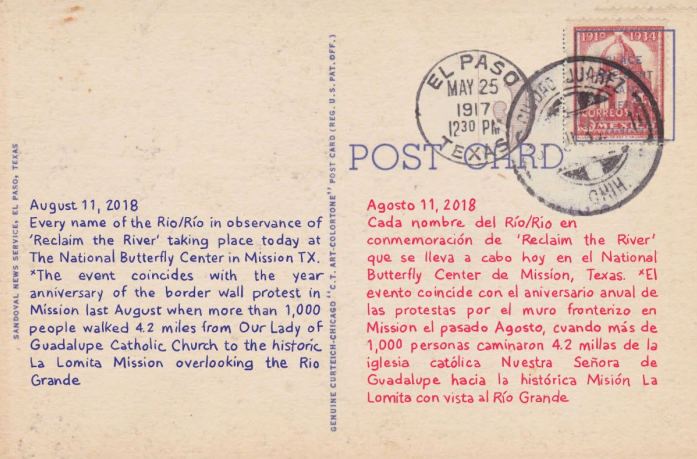 1910 1934
CORREOS
MEXICO
EL PASO
MAY 25
1917
12 30 PM
TEXAS
CIUDAD JUAREZ
POST CARD
SANDOVAL NEWS SERVICE, EL PASO, TEXAS
August 11, 2018
Every name of the Rio/Río in observance of
‘Reclaim the River’ taking place today at
The National Butterfly Center in Mission TX.
*The event coincides with the year
anniversary of the border wall protest in
Mission last August when more than 1,000
people walked 4.2 miles from Our Lady of
Guadalupe Catholic Church to the historic
La Lomita Mission overlooking the Rio
Grande
GENUINE CURTEICH-CHICAGO "C.T. ART-COLORTONE" POST CARD (REG. U.S. PAT. OFF.)
Agosto 11, 2018
Cada nombre del Río/Rio en
conmemoración de ‘Reclaim the River’
que se lleva a cabo hoy en el National
Butterfly Center de Missíon, Texas. *El
evento coincide con el aniversario anual de
las protestas por el muro fronterizo en
Mission el pasado Agosto, cuando más de
1,000 personas caminaron 4.2 millas de la
iglesia católica Nuestra Señora de
Guadalupe hacia la histórica Misión La
Lomita con vista al Río Grande